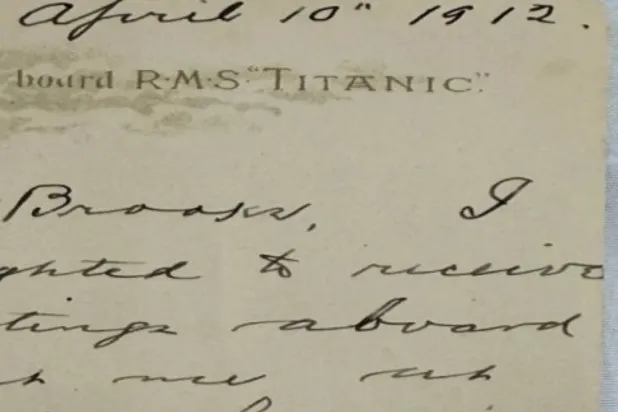 April 10" 1912.
board R·M·S "TITANIC".
Brooks, I
ghted to receive
tings aboard
t me at